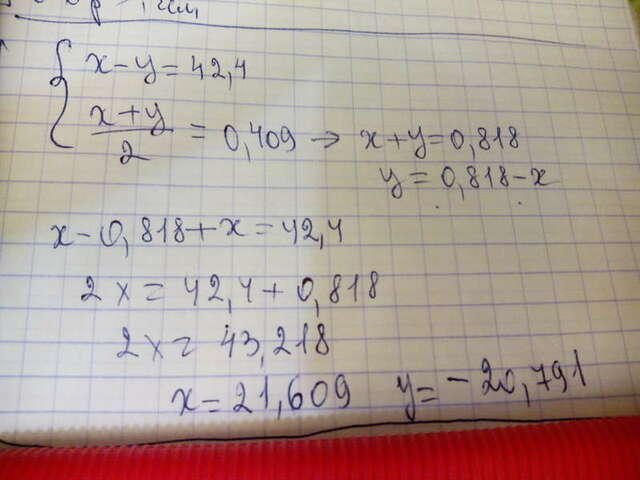 x - y = 42,4
x + y / 2 = 0,409 → x + y = 0,818
y = 0,818 - x
x - 0,818 + x = 42,4
2x = 42,4 + 0,818
2x = 43,218
x = 21,609 y = - 20,791